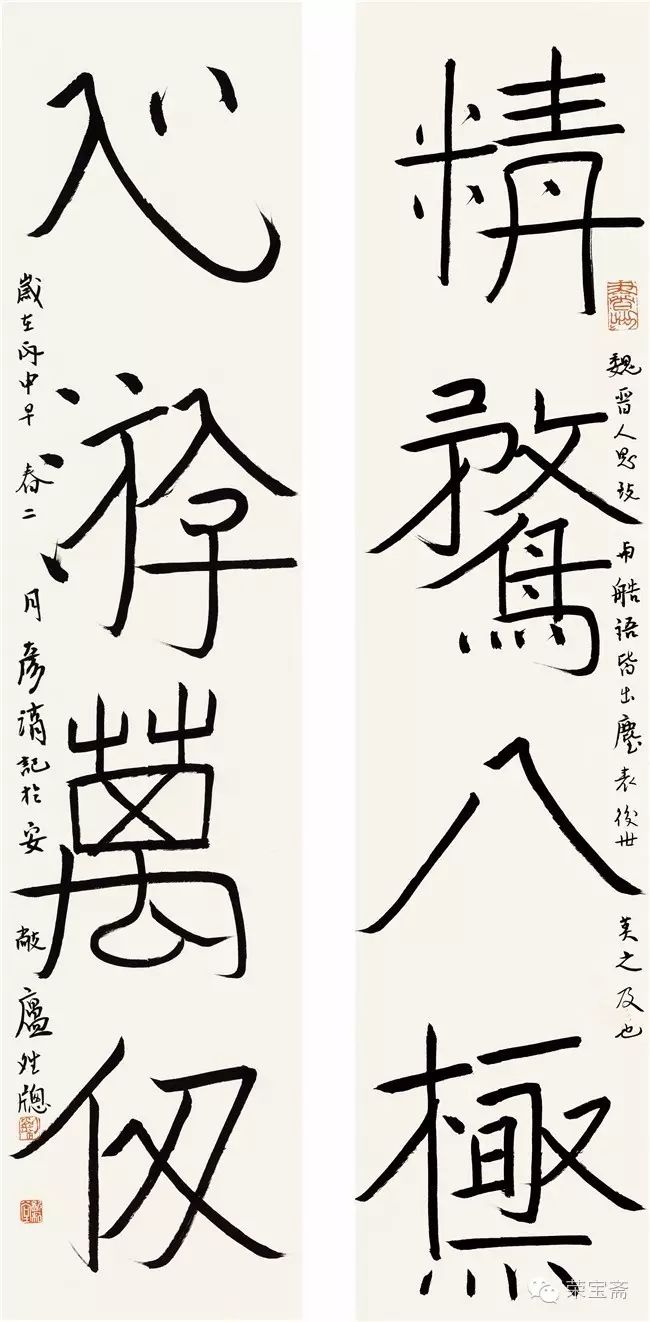 精騖八極
魏晉人思致
語皆出塵表後世莫之及也
心游萬仞
歲在丙申早春二月彦湖記於安敝廬
荣宝斋